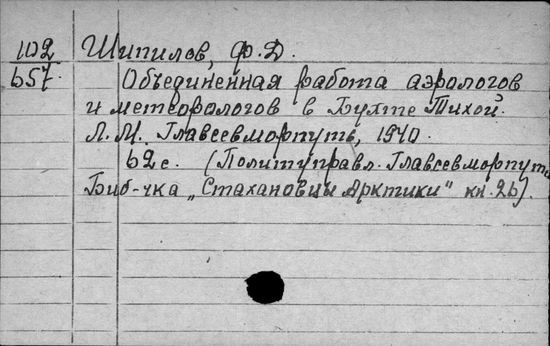 102 Шипилов, Ф.Д.
657. Объединенная работа аэрологов
и метеорологов в Бухте Тихой.
Л.М. Главсевморпуть, 1940.
62 с. (Политуправл. Главсевморпути
Биб-чка „Стахановцы Арктики" кн. 26).